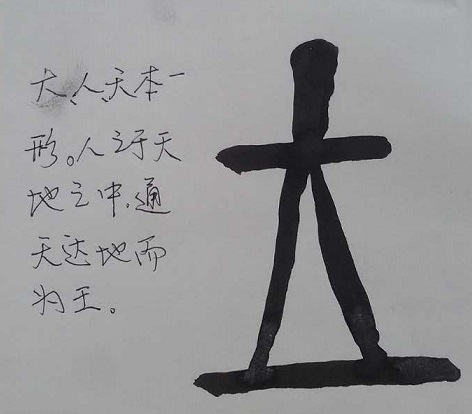 大、人、天本一
形。人立于天
地之中，通
天达地而
为王。